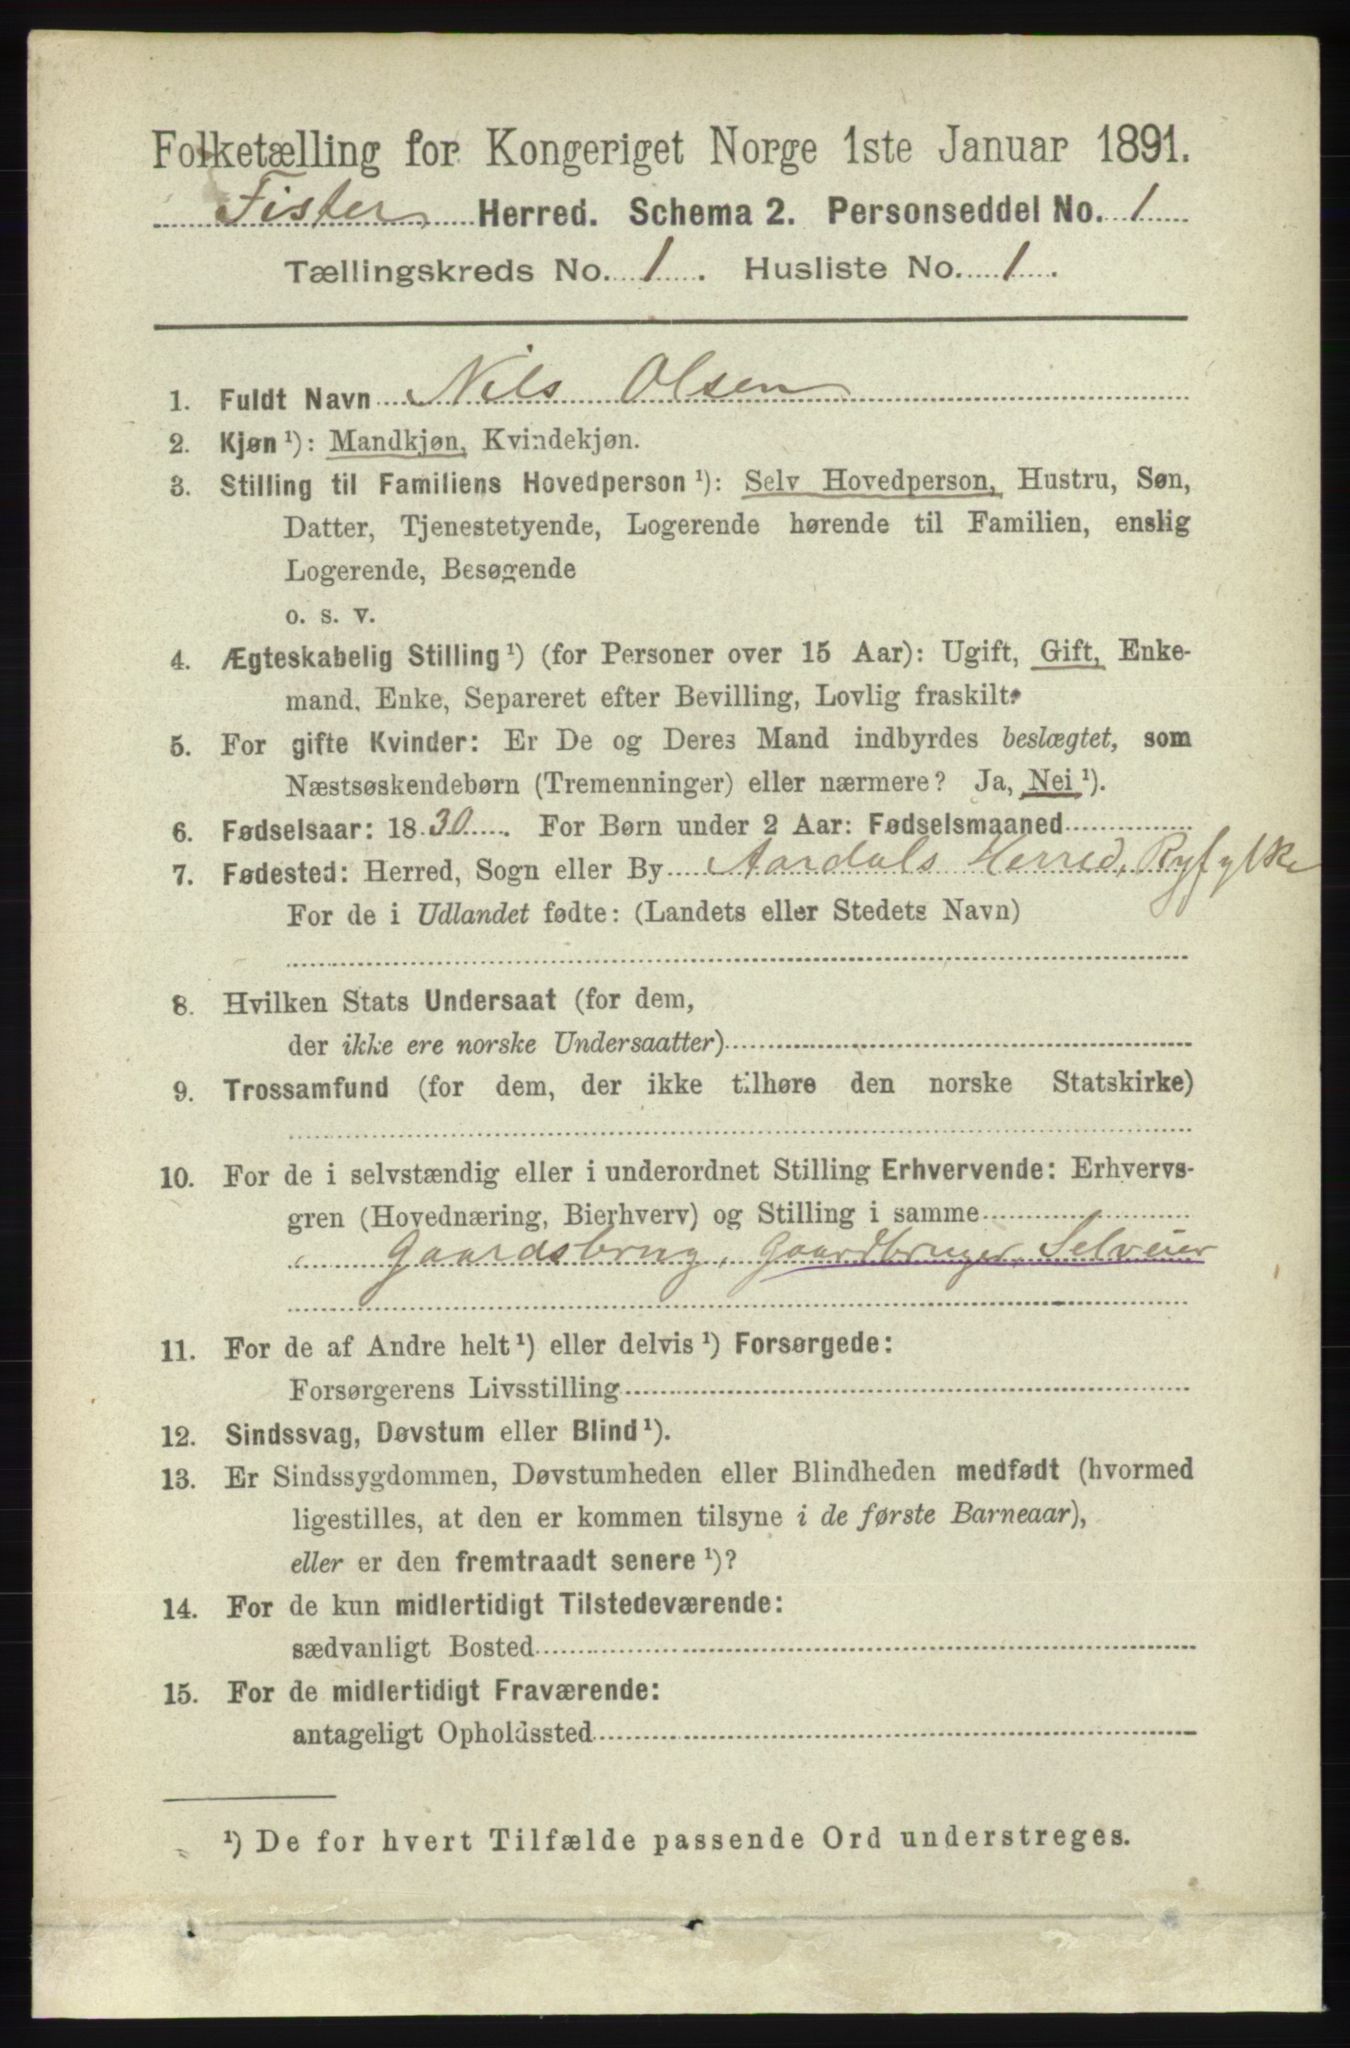 Folketælling for Kongeriget Norge 1ste Januar 1891.
Fister Herred. Schema 2. Personseddel No. 1
Tællingskreds No. 1. Husliste No. 1.
1. Fuldt Navn Nils Olsen
2. Kjøn ¹): Mandkjøn, Kvindekjøn.
3. Stilling til Familiens Hovedperson ¹): Selv Hovedperson, Hustru, Søn,
Datter, Tjenestetyende, Logerende hørende til Familien, enslig
Logerende, Besøgende
o. s. v.
4. Ægteskabelig Stilling ¹) (for Personer over 15 Aar): Ugift, Gift, Enke-
mand, Enke, Separeret efter Bevilling, Lovlig fraskilt.
5. For gifte Kvinder: Er De og Deres Mand indbyrdes beslægtet, som
Næstsøskendebørn (Tremenninger) eller nærmere? Ja, Nei ¹).
6. Fødselsaar: 1830. For Børn under 2 Aar: Fødselsmaaned
7. Fødested: Herred, Sogn eller By Aardals Herred, Ryfylke
For de i Udlandet fødte: (Landets eller Stedets Navn)
8. Hvilken Stats Undersaat (for dem,
der ikke ere norske Undersaatter)
9. Trossamfund (for dem, der ikke tilhøre den norske Statskirke)
10. For de i selvstændig eller i underordnet Stilling Erhvervende: Erhvervs-
gren (Hovednæring, Bierhverv) og Stilling i samme
Gaardsbrug, Gaardbruger, Selveier
11. For de af Andre helt ¹) eller delvis ¹) Forsørgede:
Forsørgerens Livsstilling
12. Sindssvag, Døvstum eller Blind ¹).
13. Er Sindssygdommen, Døvstumheden eller Blindheden medfødt (hvormed
ligestilles, at den er kommen tilsyne i de første Barneaar),
eller er den fremtraadt senere ¹)?
14. For de kun midlertidigt Tilstedeværende:
sædvanligt Bosted
15. For de midlertidigt Fraværende:
antageligt Opholdssted
¹) De for hvert Tilfælde passende Ord understreges.